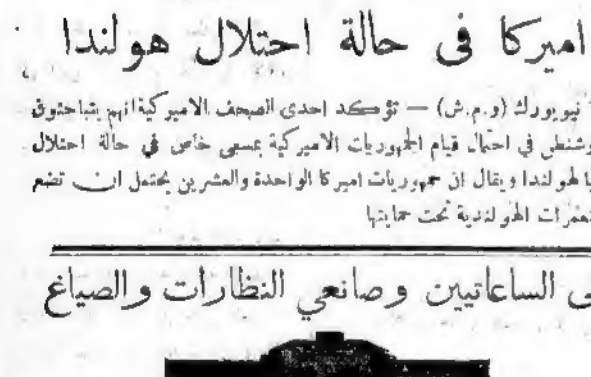 اميركا في حالة احتلال هولندا
نيويورك (و.م.ش) — تؤكد احدى الصحف الاميركية انهم يتباحثون
وشنطن في احتمال قيام الجمهوريات الاميركية بمسعى خاص في حالة احتلال
يا لهولندا ويقال ان جمهوريات اميركا الواحدة والعشرين يحتمل ان تضع
تعمرات الهولندية تحت حمايتها
ى الساعاتيين وصانعي النظارات والصياغ